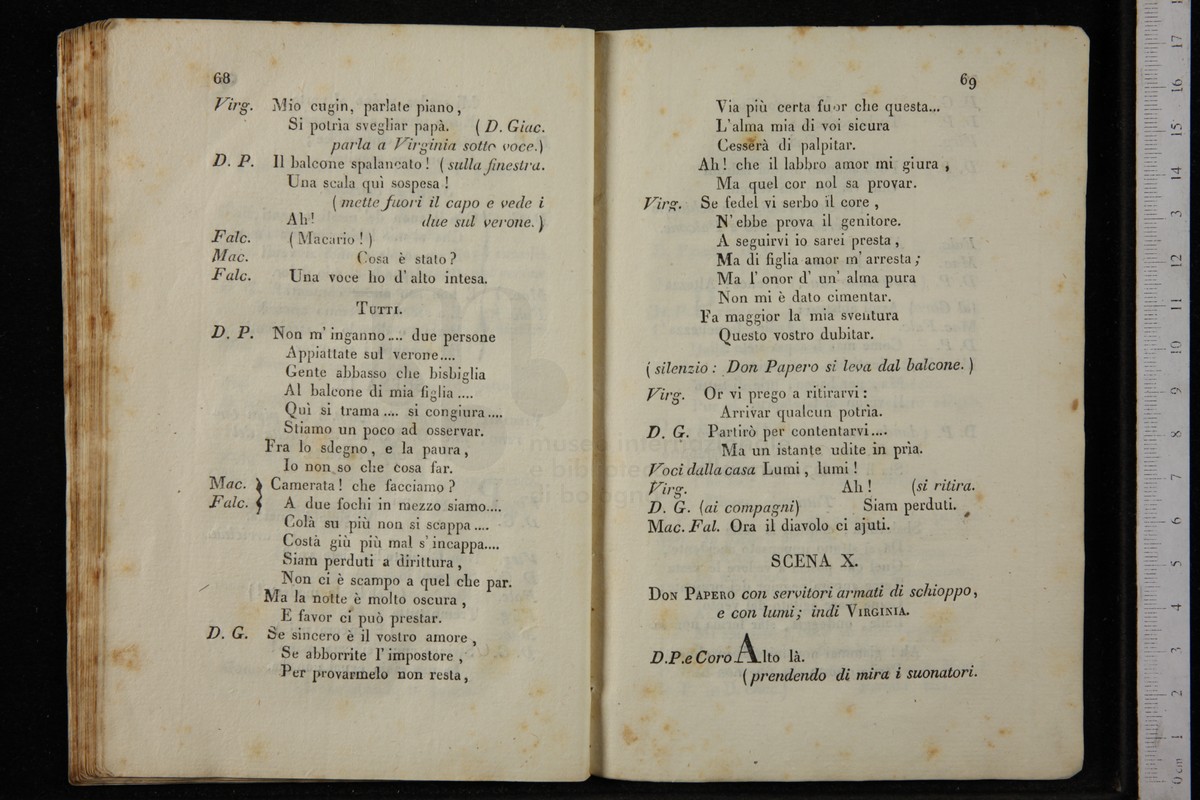 68
Virg. Mio cugin, parlate piano,
Si potrìa svegliar papà. (D. Giac.
parla a Virginia sotto voce.)
D. P. Il balcone spalancato! (sulla finestra.
Una scala quì sospesa!
(mette fuori il capo e vede i
Ah! due sul verone.)
Falc. (Macario!)
Mac. Cosa è stato?
Falc. Una voce ho d'alto intesa.
TUTTI.
D. P. Non m'inganno.... due persone
Appiattate sul verone....
Gente abbasso che bisbiglia
Al balcone di mia figlia....
Quì si trama.... si congiura....
Stiamo un poco ad osservar.
Fra lo sdegno, e la paura,
Io non so che cosa far.
Mac. } Camerata! che facciamo?
Falc. } A due fochi in mezzo siamo....
Colà su più non si scappa....
Costà giù più mal s'incappa....
Siam perduti a dirittura,
Non ci è scampo a quel che par.
Ma la notte è molto oscura,
E favor ci può prestar.
D. G. Se sincero è il vostro amore,
Se abborrite l'impostore,
Per provarmelo non resta,
69
Via più certa fuor che questa...
L'alma mia di voi sicura
Cesserà di palpitar.
Ah! che il labbro amor mi giura,
Ma quel cor nol sa provar.
Virg. Se fedel vi serbo il core,
N'ebbe prova il genitore.
A seguirvi io sarei presta,
Ma di figlia amor m'arresta;
Ma l'onor d'un'alma pura
Non mi è dato cimentar.
Fa maggior la mia sventura
Questo vostro dubitar.
(silenzio: Don Papero si leva dal balcone.)
Virg. Or vi prego a ritirarvi:
Arrivar qualcun potrìa.
D. G. Partirò per contentarvi....
Ma un istante udite in prìa.
Voci dalla casa Lumi, lumi!
Virg. Ah! (si ritira.
D. G. (ai compagni) Siam perduti.
Mac. Fal. Ora il diavolo ci ajuti.
SCENA X.
DON PAPERO con servitori armati di schioppo,
e con lumi; indi VIRGINIA.
D.P.e Coro Alto là.
(prendendo di mira i suonatori.